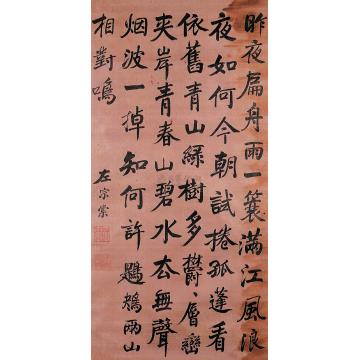 昨夜扁舟雨一蓑滿江風浪
夜如何今朝試捲孤蓬看
依舊青山綠樹多鬱〻層巒
夾岸青春山碧水去無聲
烟波一掉知何許鷓鴣兩山
相對鳴
左宗棠